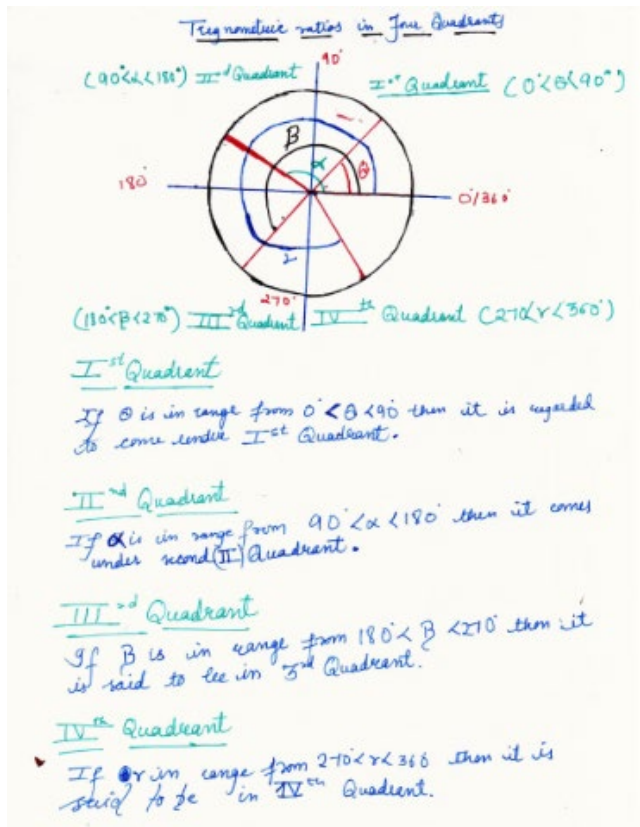 Trignometric ratios in Four Quadrants
90°
(90°<α<180°) II nd Quadrant
I st Quadrant (0°<θ<90°)
β
α
θ
180°
0°/360°
270°
(180°<β<270°) III rd Quadrant
IV th Quadrant (270<r<360°)
I st Quadrant
If θ is in range from 0° < θ < 90 then it is regarded
to come under I st Quadrant.
II nd Quadrant
If α is in range from 90° < α < 180° then it comes
under second (II) Quadrant.
III rd Quadrant
If β is in range from 180° < β < 270° then it
is said to lee in 3rd Quadrant.
IV th Quadrant
If r in range from 270<r<360 then it is
said to be in IV th Quadrant.